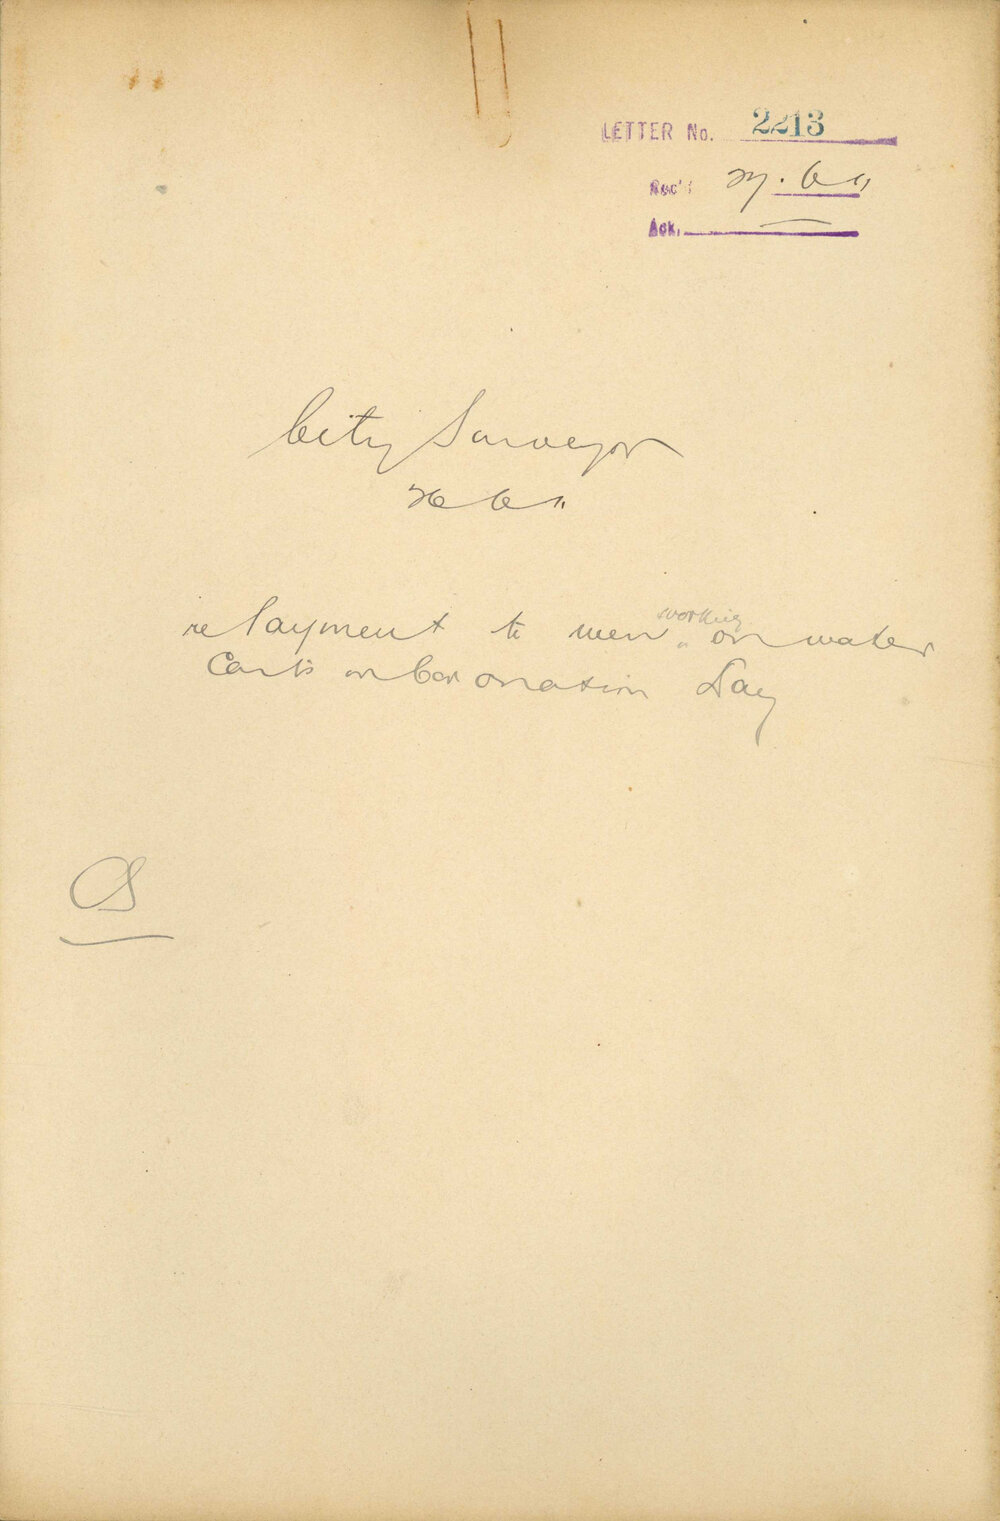 LETTER No. 2213
Rec'd 27. 6 11
Ack.
City Surveyor
26 6 11
re payment to men working on water
Carts on Coronation Day
CS